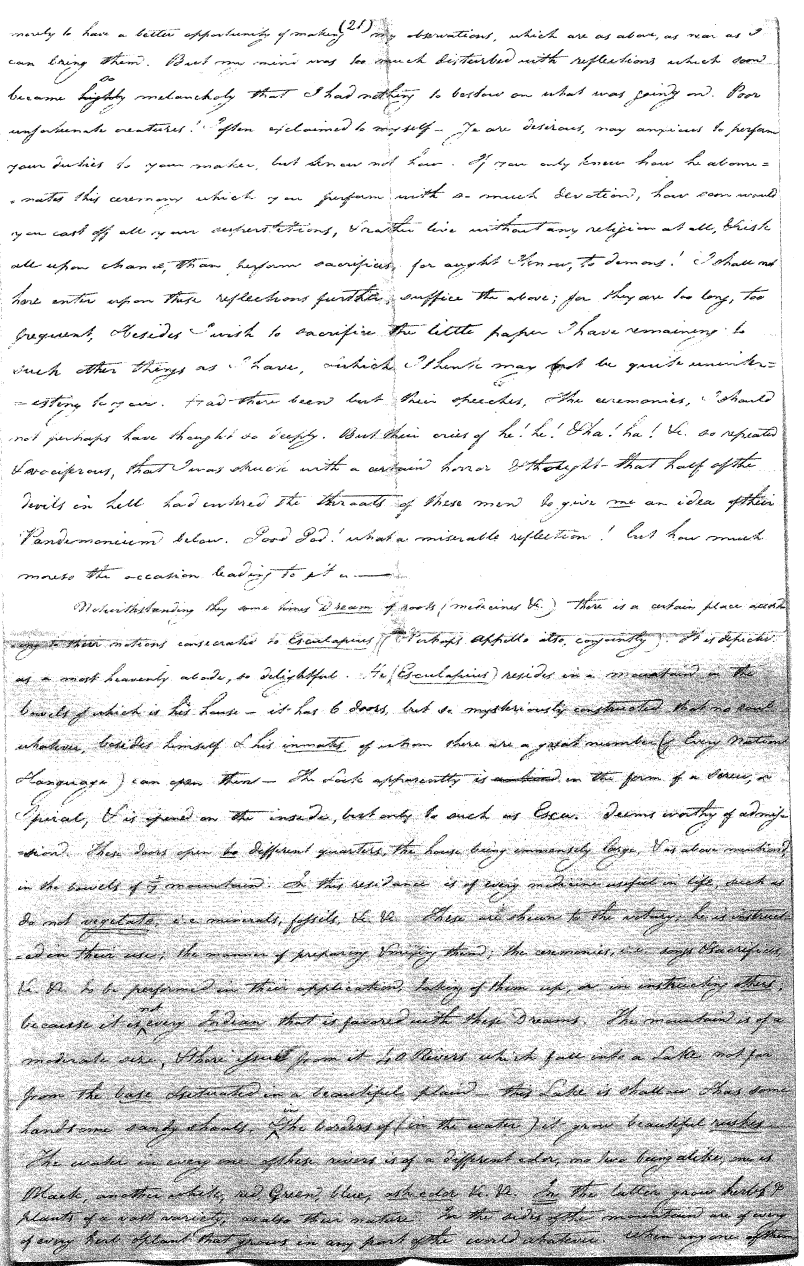 (21)
merely to have a better opportunity of making my observations, which are as above, as near as I
can bring them. But my mind was too much disturbed with reflections which soon
became so highly melancholy that I had nothing to bestow on what was going on. Poor
unfortunate creatures! I often exclaimed to myself — Ye are desirous, nay anxious to perform
your duties to your maker, but know not how. If you only knew how he abomi=
=nates this ceremony which you perform with so much devotion, how soon would
you cast off all your superstitions, & rather live without any religion at all, & risk
all upon chance, than perform sacrifices, for aught I know, to demons! I shall not
here enter upon these reflections further, suffice the above; for they are too long, too
frequent, & besides I wish to sacrifice the little paper I have remaining to
such other things as I have, which I think may not be quite uninter=
=esting to you. Had there been but their speeches, & the ceremonies, I should
not perhaps have thought so deeply. But their cries of he! he! & ha! ha! &c. so repeated
& vociferous, that I was struck with a certain horror & thought that half of the
devils in hell had entered the throats of these men to give me an idea of their
Pandemonium below. Good God! what a miserable reflection! but how much
more so the occasion leading to it
Notwithstanding they some times Dream of roots (medicines &c.) there is a certain place accord
ing to their notions consecrated to Esculapius (Perhaps Appollo also, conjointly). It is depicted
as a most heavenly abode, so delightful. He (Esculapius) resides in a mountain in the
bowels of which is his house — it has 6 doors, but so mysteriously constructed that no soul
whatever, besides himself & his inmates, of whom there are a great number (of Every Nation
& Language) can open them — The Lock apparently is in the form of a screw, or
Spiral, & is opened on the inside, but only to such as Escu. deems worthy of admis=
=sion. These doors open to different quarters, the house being immensely large, & as above mentioned,
in the bowels of ye mountain. In this residence is of every medicine useful in life, such as
do not vegetate, i.e. minerals, fossils, &c. &c. These are shewn to the votary; he is instruct=
=ed in their use; the manner of preparing & mixing them; the ceremonies, i.e. songs & sacrifices,
&c. &c. to be performed in their application, taking of them up, or in instructing others;
because it is not every Indian that is favored with these Dreams. The mountain is of a
moderate size, & there issues from it 40 Rivers which fall into a Lake not far
from the base & situated in a beautiful plain — this Lake is shallow & has some
handsome sandy shoals, & in the borders of (in the water) it grow beautiful rushes.
The water in every one of these rivers is of a different color, no two being alike, one is
Black, another white, red, Green, blue, ash color &c. &c. In the latter grow herbs &
plants of a vast variety, as also their nature. In the sides of the mountain are of every
of every herb & plant that grows in any part of the world whatever. When any one of them